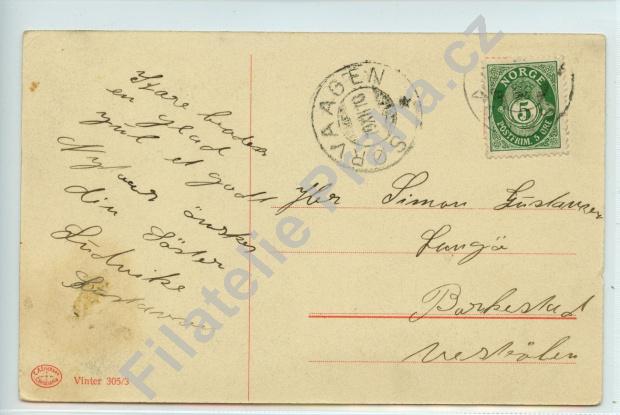 Kære broder
en glad
jul et godt
Nyaar önsker
din Söster
Ludvike
Gustavsen
SØRVAAGEN
NORGE
5
POSTFRIM. 5 ØRE
Hr Simon Gustavsen
Langö
Barkestad
Vesteraalen
Vinter 305/3
Filatelie Praha.cz